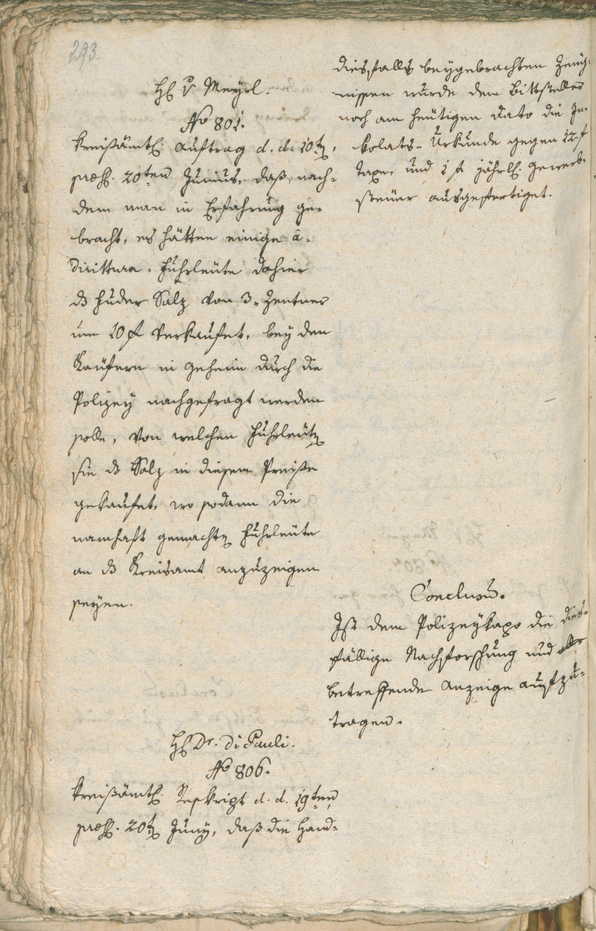 243.
H. v. Meyrl.
No 801.
Kreisämtl. Auftrag d. d. 10t.
präs. 20ten Junius, daß, nach-
dem man in Erfahrung ge-
bracht, es hätten einige a.
Dirittura. Fuhrleute dahier
ds Fuder Salz von 3. Zentner
um 10 f verkaufet, bey den
Käufern in geheim durch die
Polizey nachgefragt werden
solle, von welchen Fuhrleuten
sie ds Salz in diesem Preise
gekaufet, wo sodann die
namhaft gemachten Fuhrleute
an ds Kreisamt anzuzeigen
seyen.
H Dr. di Pauli.
No 806.
Kreisämtl. Reskript d. d. 19ten
präs. 20t Juny, daß die Hand-
diesfalls beygebrachten Zeug-
nissen wurde dem Bittsteller
noch am heutigen Dato die In-
kolats-Urkunde gegen 12 f
Taxe, und 1 f jährl. Gewerb-
steuer ausgefertiget.
Conclusum.
Ist dem Polizeykapo die dies-
fällige Nachforschung und
betreffende Anzeige aufzu-
tragen.